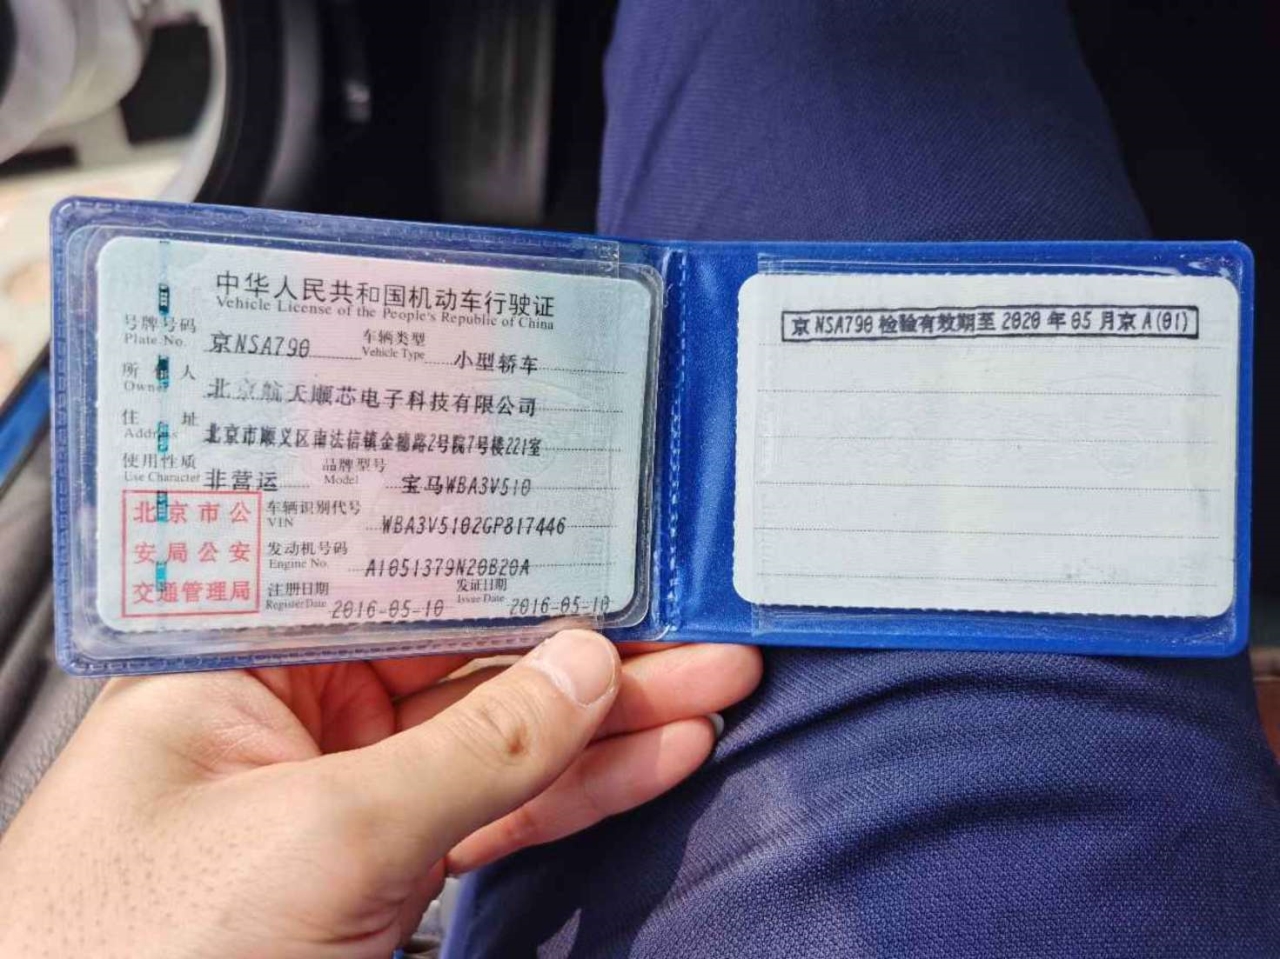 中华人民共和国机动车行驶证
Vehicle License of the People's Republic of China
号牌号码 京NSA790 车辆类型 小型轿车
Plate No. Vehicle Type
所有人 北京航天顺芯电子科技有限公司
Owner
住址 北京市顺义区南法信镇金穗路2号院7号楼221室
Address
使用性质 非营运 品牌型号 宝马WBA3V510
Use Character Model
北京市公
安局公安
交通管理局
车辆识别代号 WBA3V5102GP817446
VIN
发动机号码 A1051379N20B20A
Engine No.
注册日期 2016-05-10 发证日期 2016-05-10
Register Date Issue Date
京NSA790检验有效期至2020年05月京A(01)